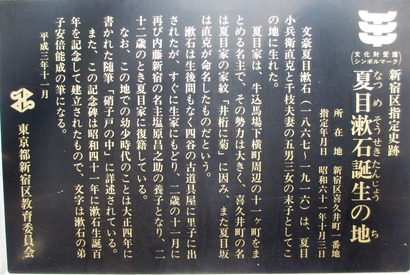 文化財愛護
シンボルマーク
新宿区指定史跡
夏目漱石誕生の地
なつめそうせきたんじょう ち
所在地 新宿区喜久井町一番地
指定年月日 昭和六十一年十月三日
文豪夏目漱石(一八六七~一九一六)は、夏目
小兵衛直克と千枝夫妻の五男三女の末子としてこ
の地に生れた。
夏目家は、牛込馬場下横町周辺の十一ヶ町をま
とめる名主で、その勢力は大きく、喜久井町の名
は夏目家の家紋「井桁に菊」に因み、また夏目坂
は直克が命名したものだという。
漱石は生後間もなく四谷の古道具屋に里子に出
されたが、すぐに生家にもどり、二歳の十一月に
再び内藤新宿の名主塩原昌之助の養子となり、二
十二歳のとき夏目家に復籍している。
なお、この地での幼少時代のことは大正四年に
書かれた随筆「硝子戸の中」に詳述されている。
また、この記念碑は昭和四十一年に漱石生誕百
年を記念して建立されたもので、文字は漱石の弟
子安倍能成の筆になる。
平成三年十一月
東京都新宿区教育委員会